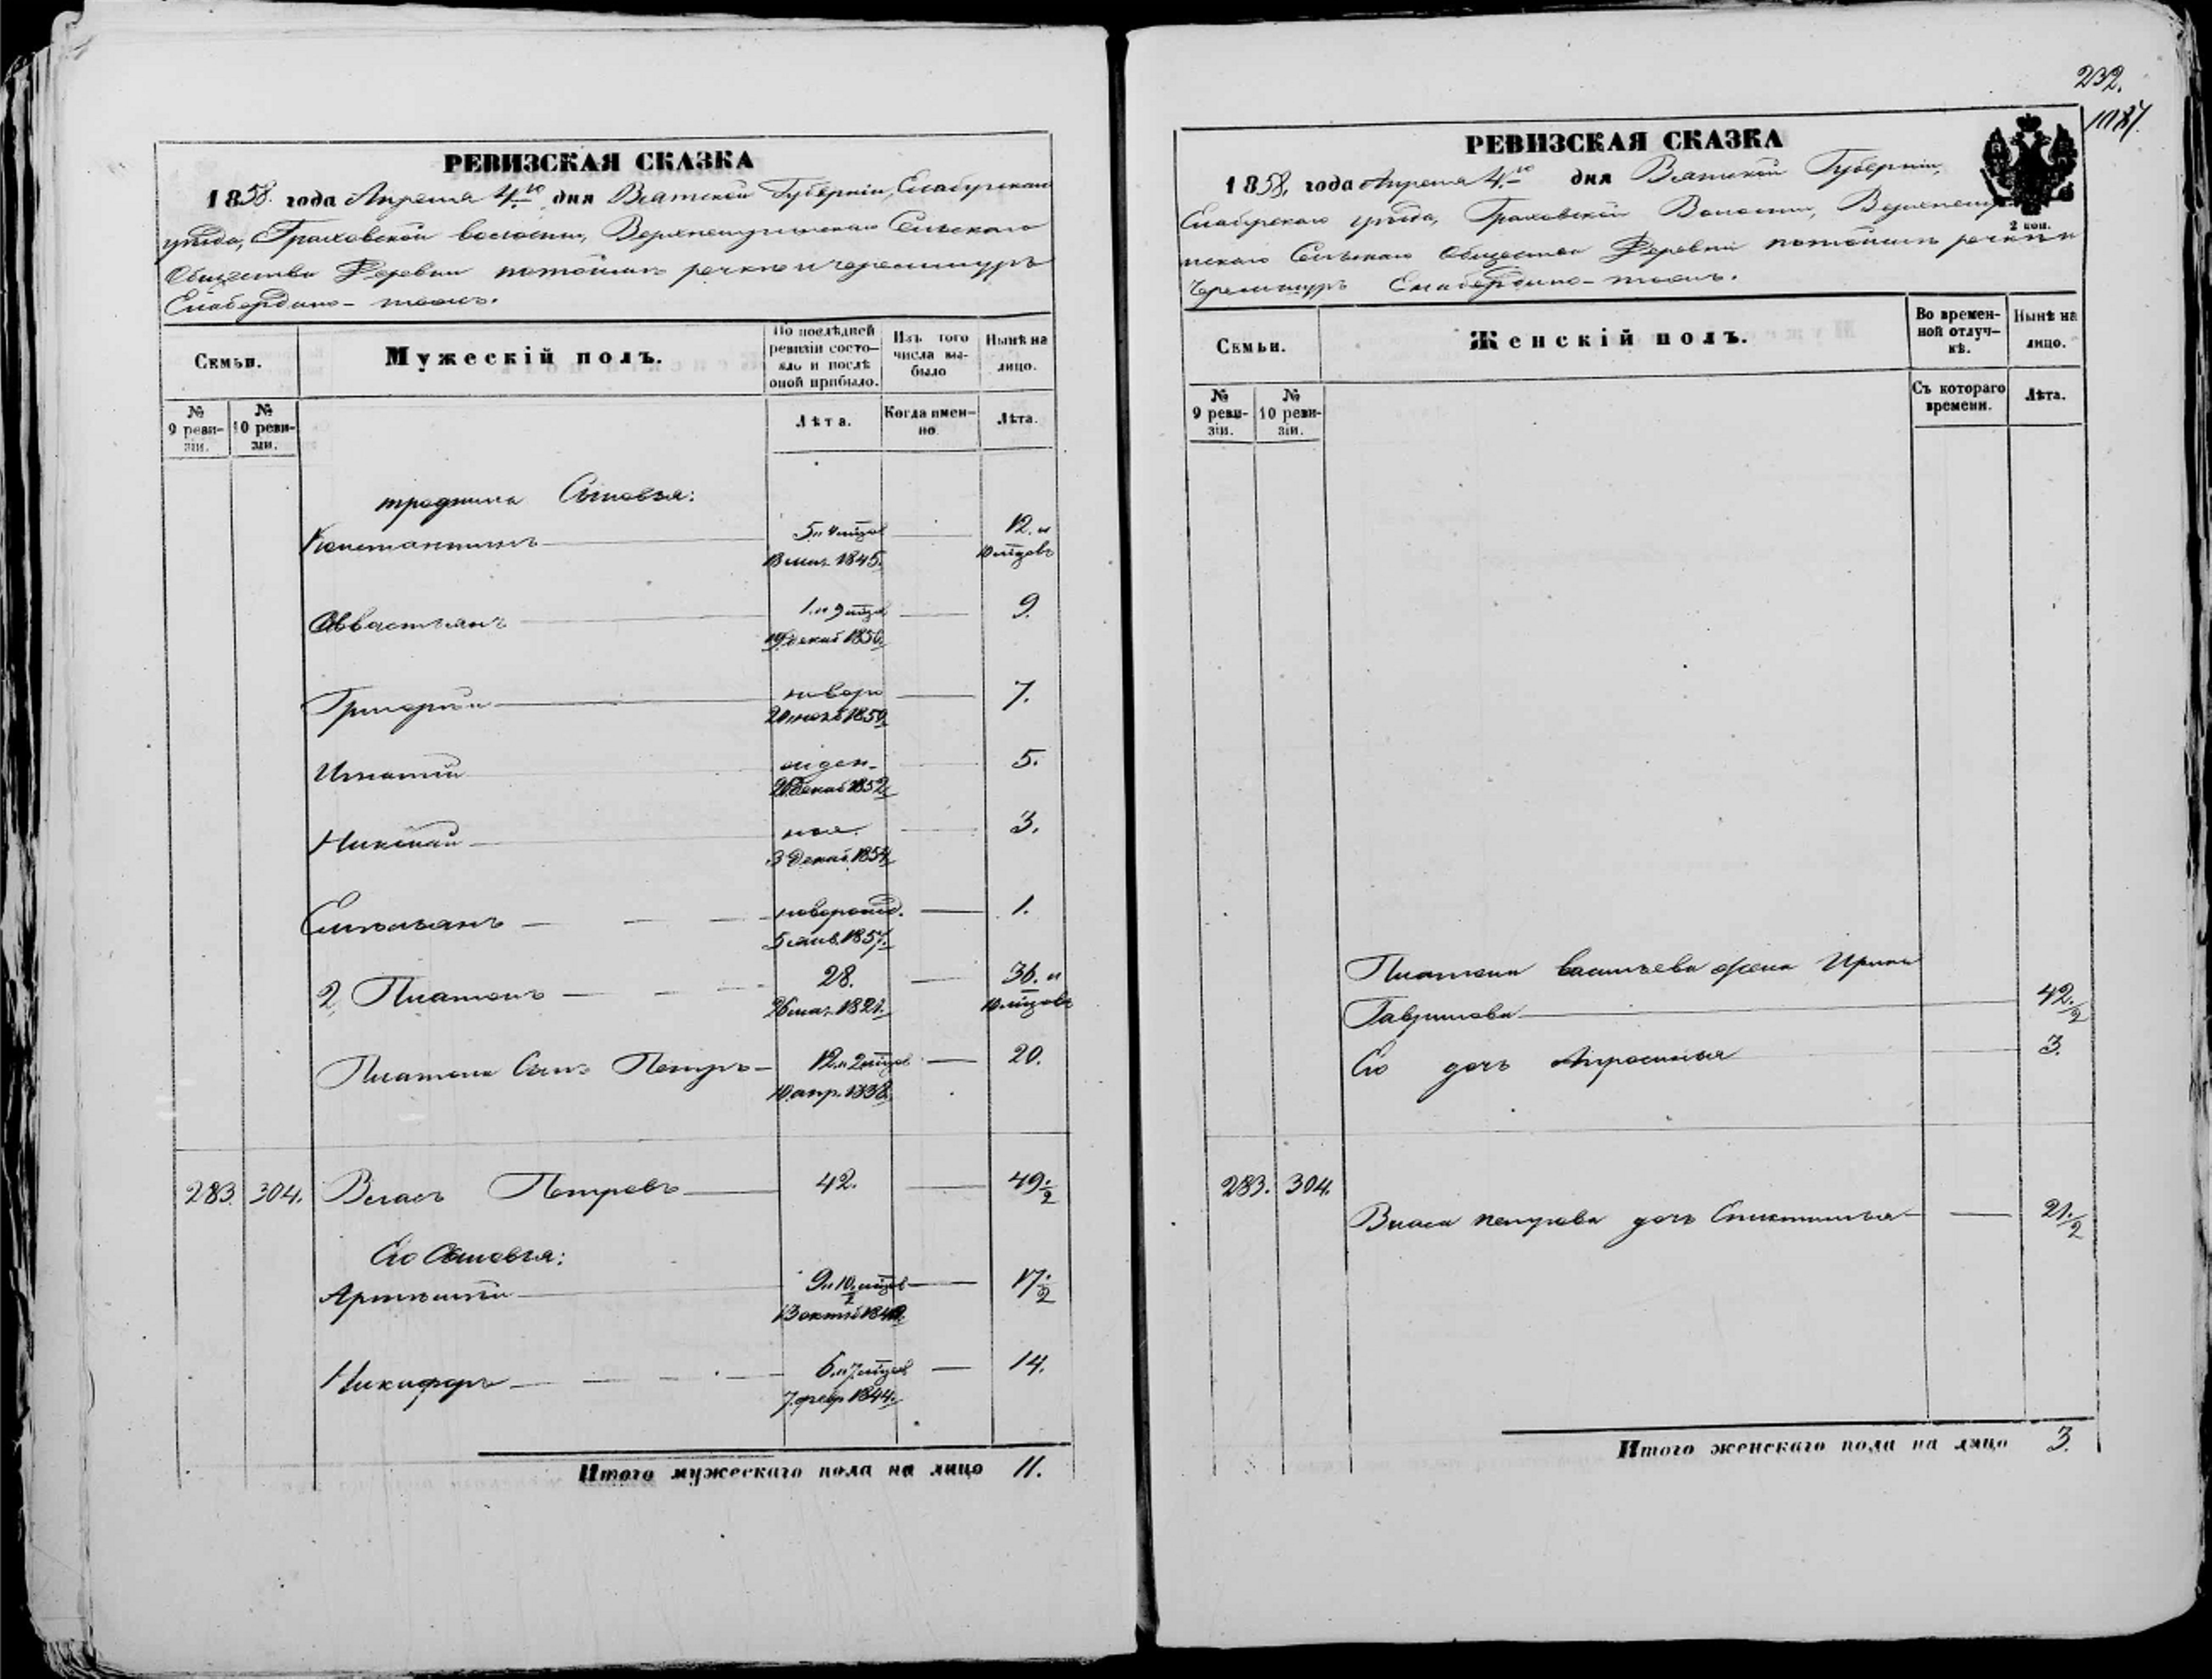 РЕВИЗСКАЯ СКАЗКА
1858. года Апреля 4.го дня Вятской Губерніи, Елабугскаго
уѣзда, Граховской волости, Сельскаго
Общества Деревни речки
Семьи.
Мужескій полъ.
По послѣдней ревизіи состояло и послѣ оной прибыло.
Изъ того числа выбыло
Нынѣ на лицо.
№ 9 ревизіи.
№ 10 ревизіи.
Лѣта.
Когда именно
Лѣта.
Сыновья:
Константинъ 5. и 4 мѣсяц 12. и
1845. 10 мѣсяцовъ
1. и 9 мѣсяц 9.
19 декаб 1850
Григорій 7.
20 1850
Игнатій 5.
26 декаб 1852
Николай 3.
3 декаб. 1854
Емельянъ новорожд. 1.
5 янв. 1857.
2, Платонъ 28. 36. и
26 1821. 10 мѣсяцовъ
Платона Сынъ Петръ 12. и 2 мѣсяцов 20.
10. апр. 1838.
283. 304. Власъ Петровъ 42. 49 1/2
Его Сыновья:
Артемій 9. и 10 1/2 мѣсяцов 17 1/2
13 октяб 1840.
Никифоръ 6. и 7. мѣсяцов 14.
7 февр 1844.
Итого мужескаго пола на лицо 11.
232.
1087.
РЕВИЗСКАЯ СКАЗКА
2 коп.
1858. года Апреля 4.го дня Вятской Губерніи,
Елабугскаго уѣзда, Граховской Волости,
Сельскаго Общества Деревни речки
Семьи.
Женскій полъ.
Во временной отлучкѣ.
Нынѣ на лицо.
№ 9 ревизіи.
№ 10 ревизіи.
Съ котораго времени.
Лѣта.
Платона Васильева жена Ирина
Гаврилова 42. 1/2
Его дочь Апросинья 3.
283. 304.
Власа петрова дочь 21. 1/2
Итого женскаго пола на лицо 3.